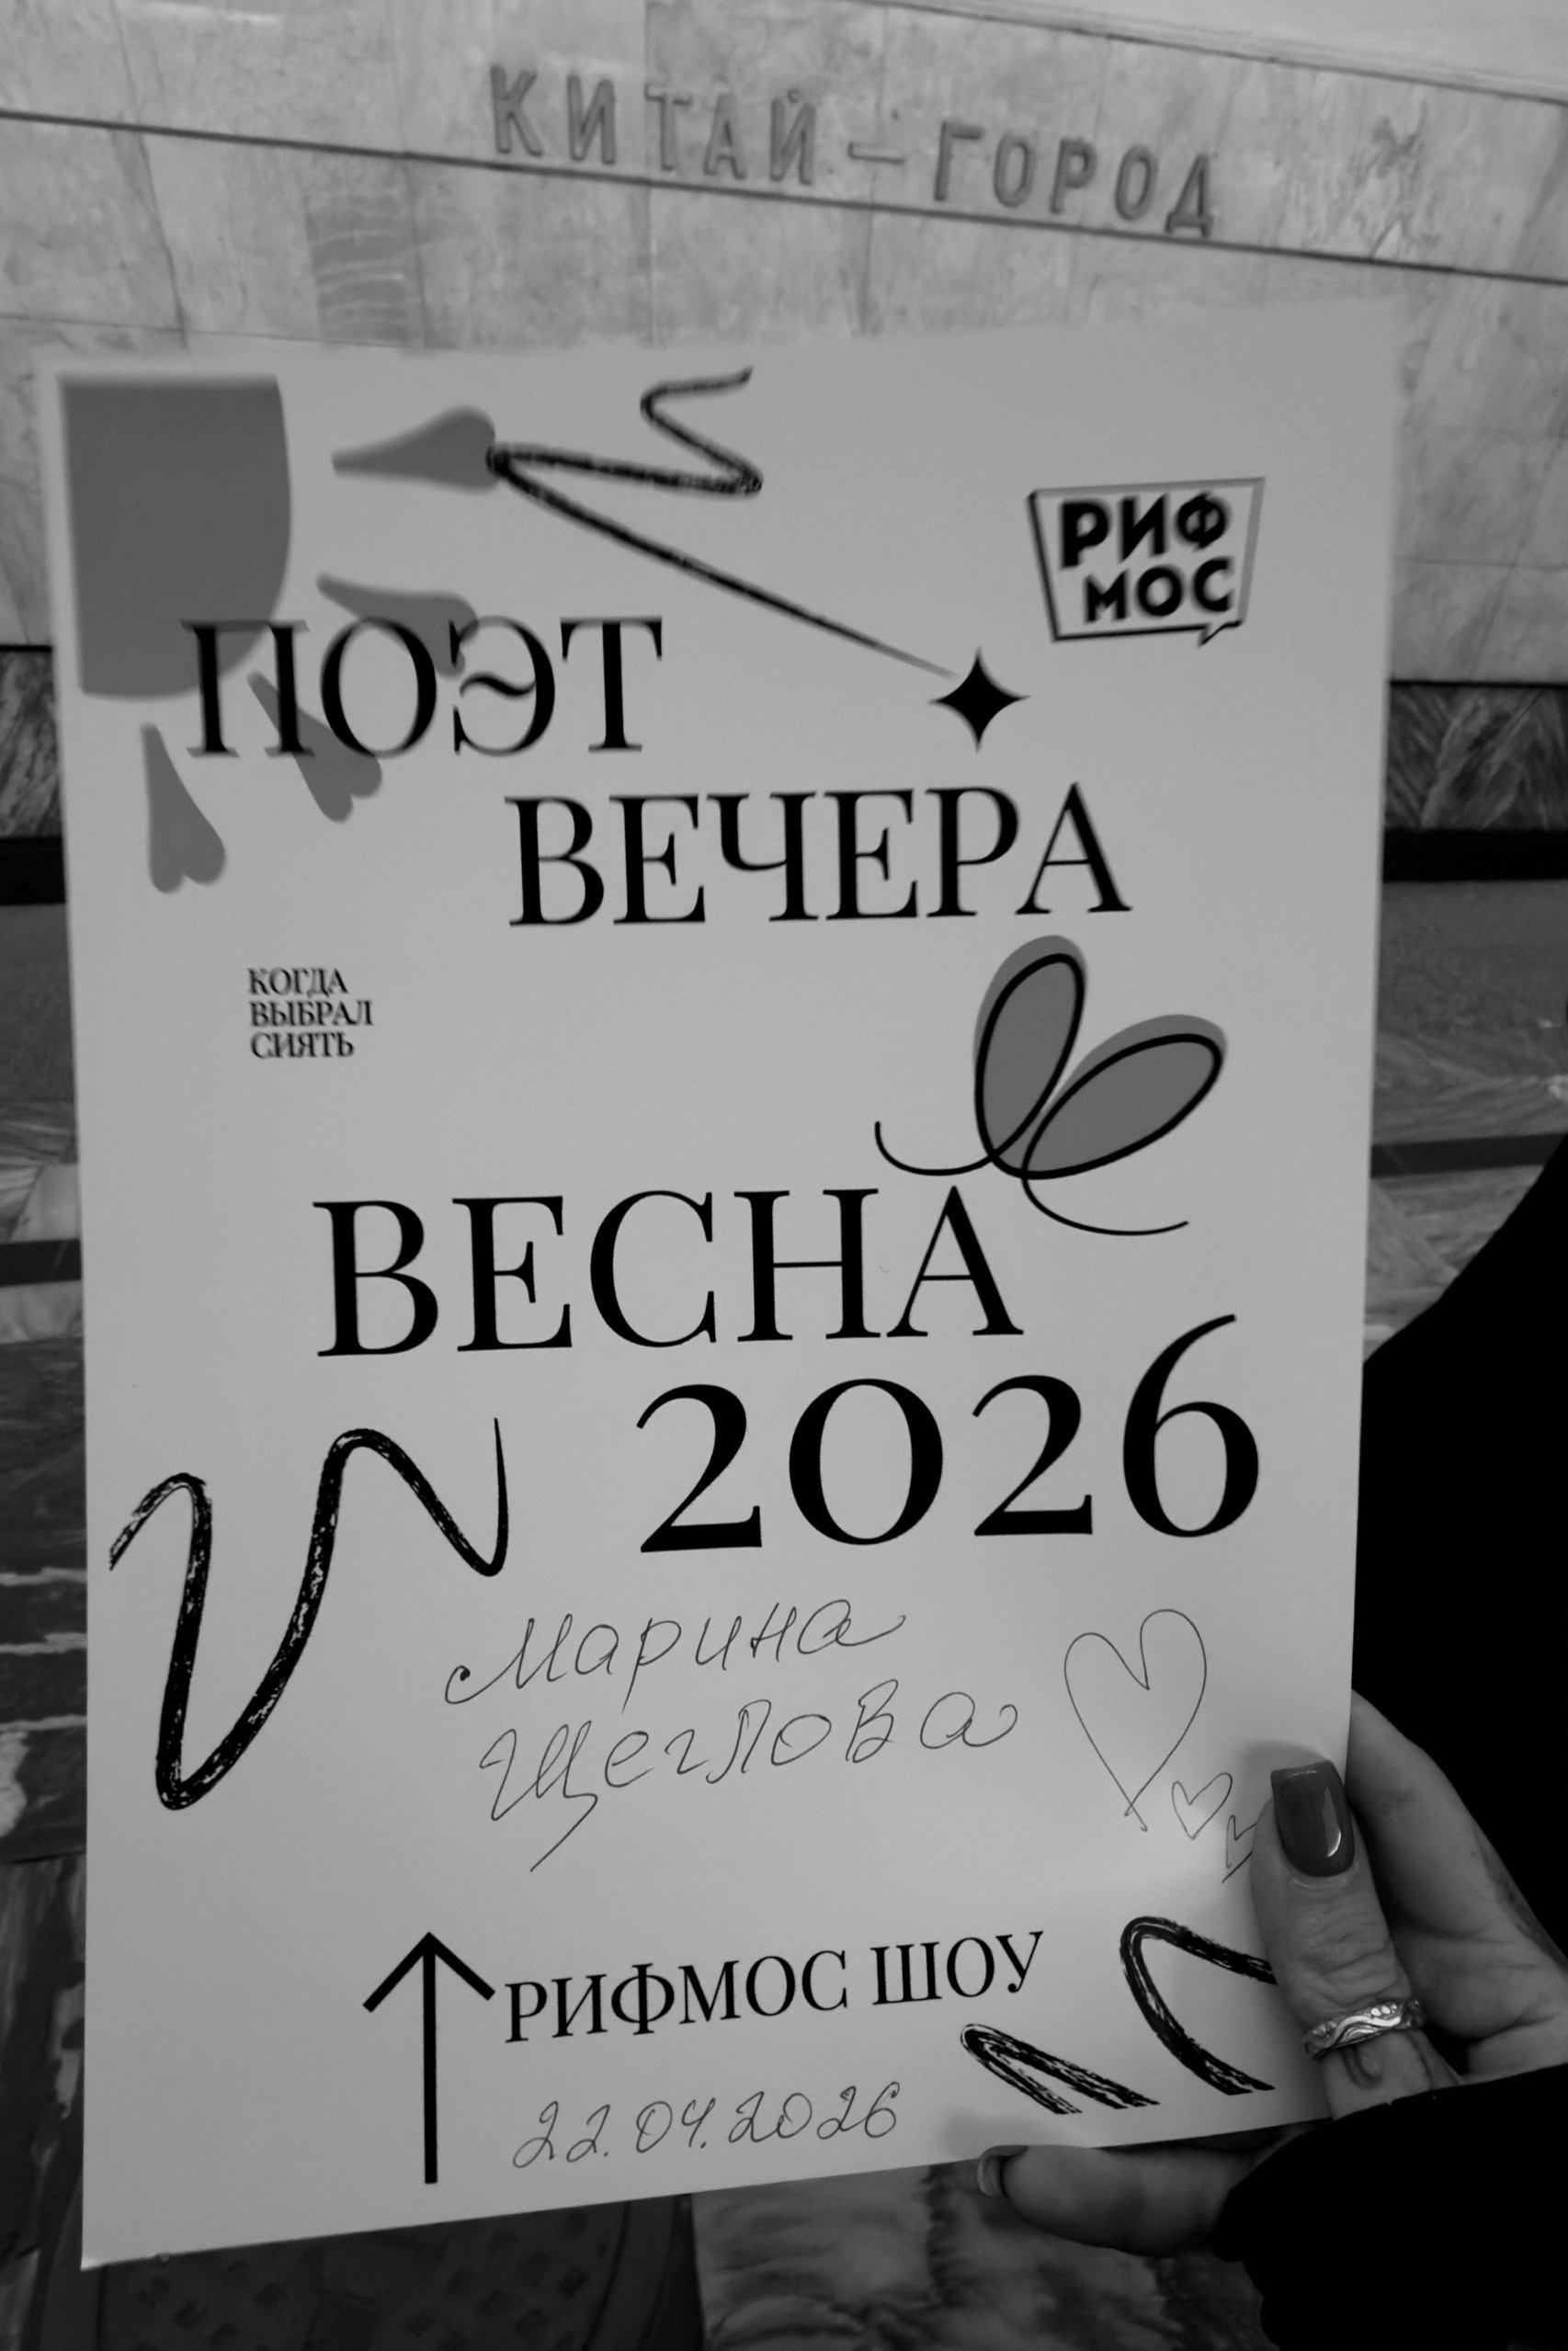 КИТАЙ—ГОРОД
РИФ
МОС
ПОЭТ
ВЕЧЕРА
КОГДА
ВЫБРАЛ
СИЯТЬ
ВЕСНА
2026
Марина
Щеглова
РИФМОС ШОУ
22.04.2026